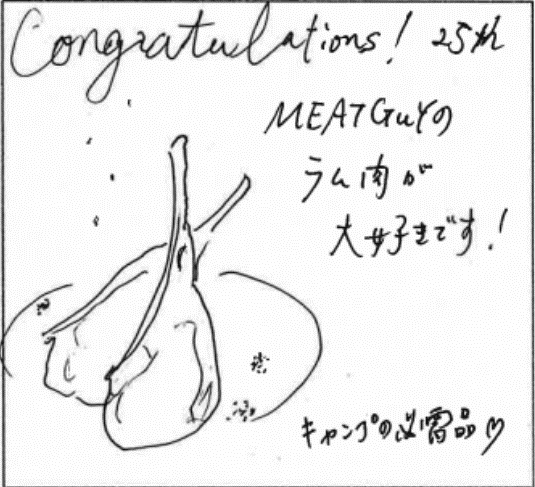 Congratulations! 25th
MEATGuYの
ラム肉が
大好きです!
キャンプの必需品♡